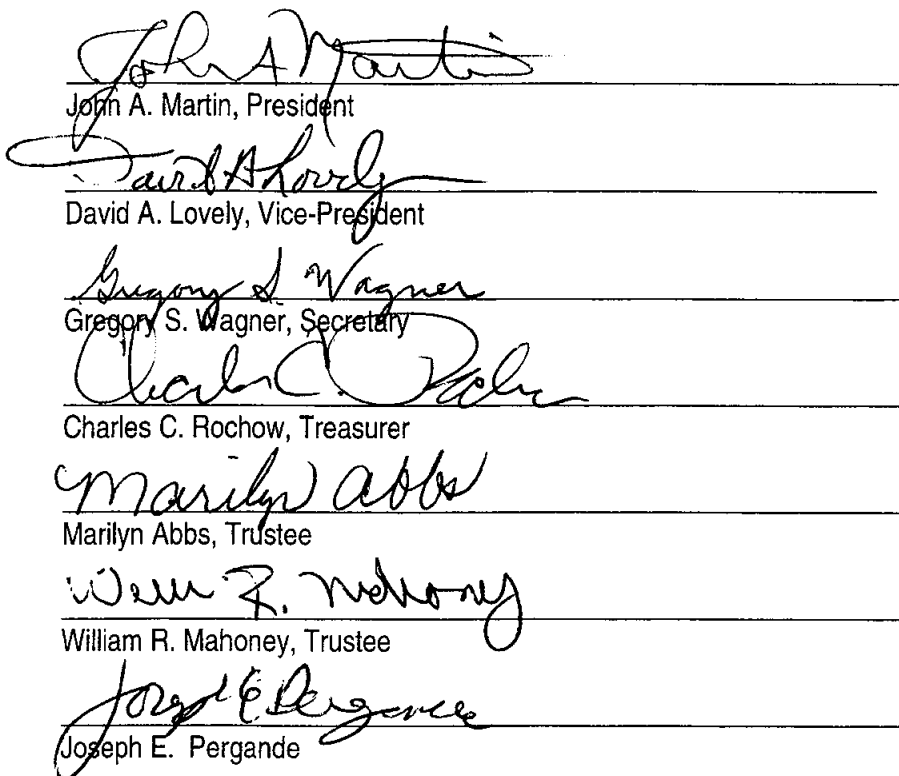 John A Martin
John A. Martin, President
David A Lovely
David A. Lovely, Vice-President
Gregory S. Wagner
Gregory S. Wagner, Secretary
Charles C. Rochow
Charles C. Rochow, Treasurer
Marilyn Abbs
Marilyn Abbs, Trustee
Willi R. Mahoney
William R. Mahoney, Trustee
Joseph E Pergande
Joseph E. Pergande